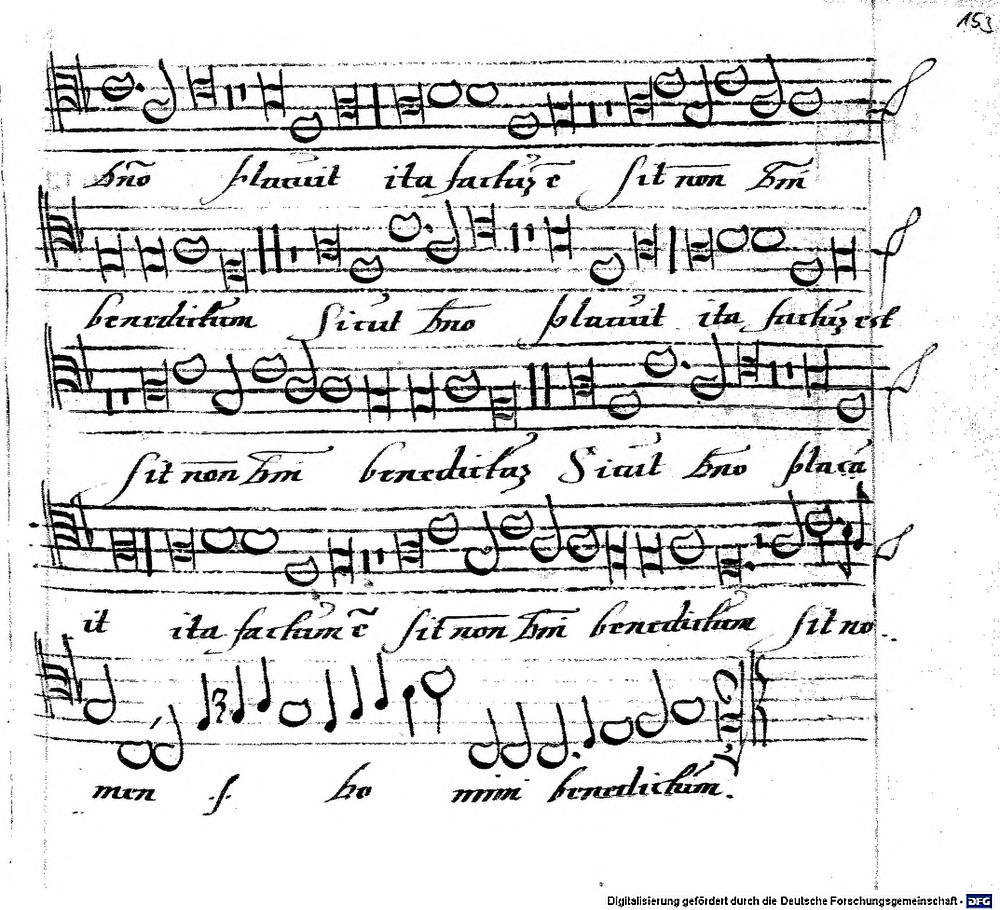 153
dno placuit ita factuz ē sit non dmi
benedictum Sicut dno placuit ita factuz est
sit non dmi benedictuz Sicut dno placu
it ita factum ē sit non dmi benedictum sit no
men do mini benedictum.
Digitalisierung gefördert durch die Deutsche Forschungsgemeinschaft - DFG